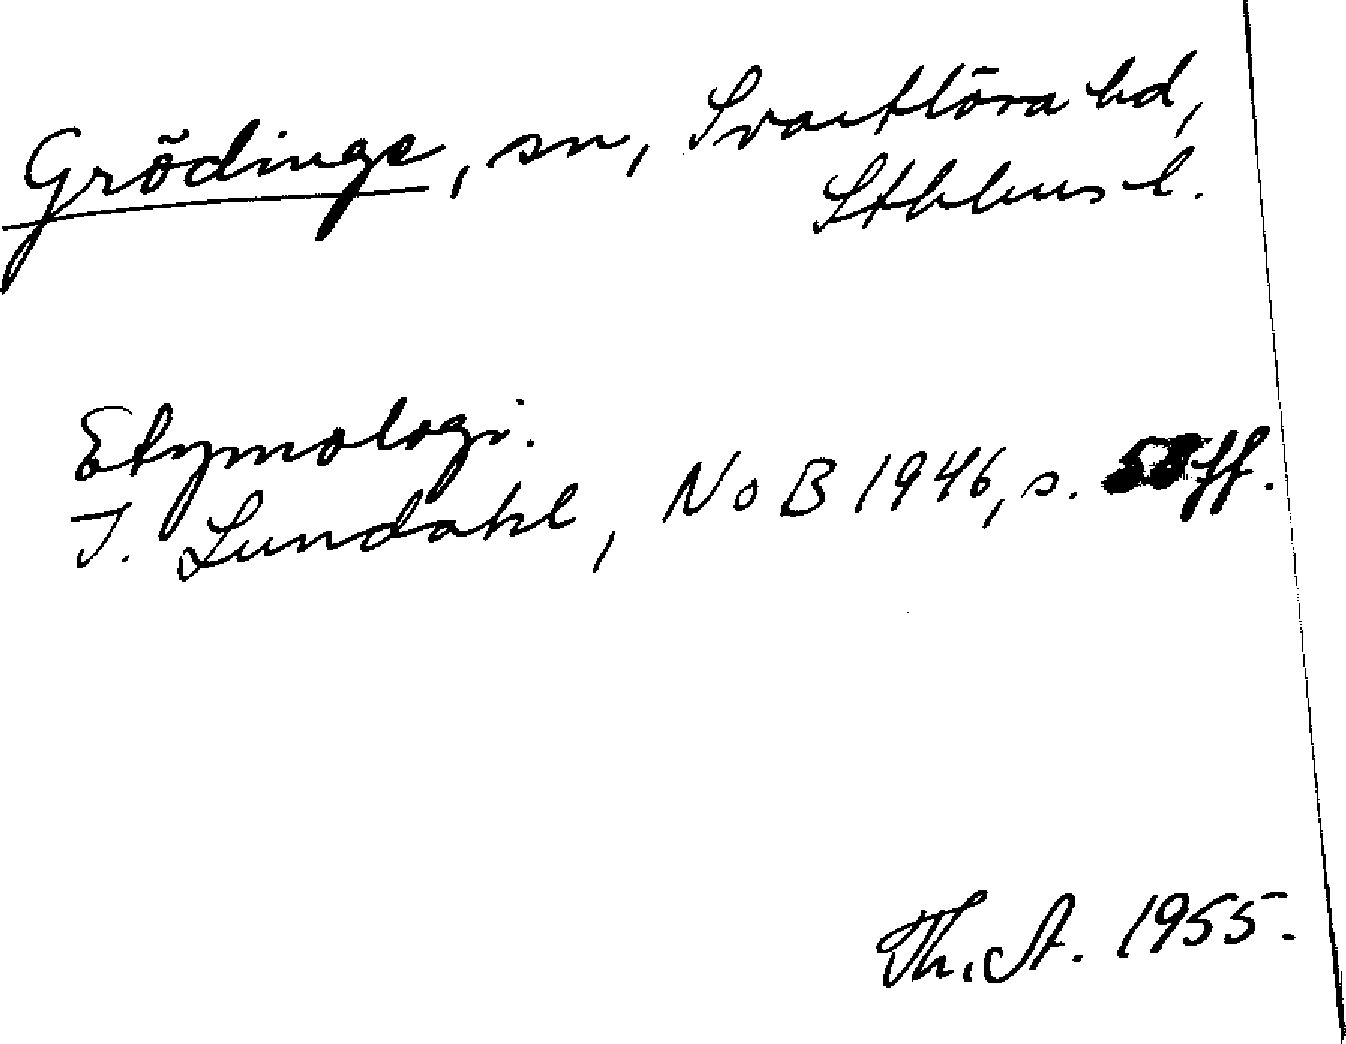 Grödinge, sn, Svartlösa hd,
Sthlms l.
Etymologi.
I. Lundahl, NoB 1946, s. 58ff.
Th. A. 1955.